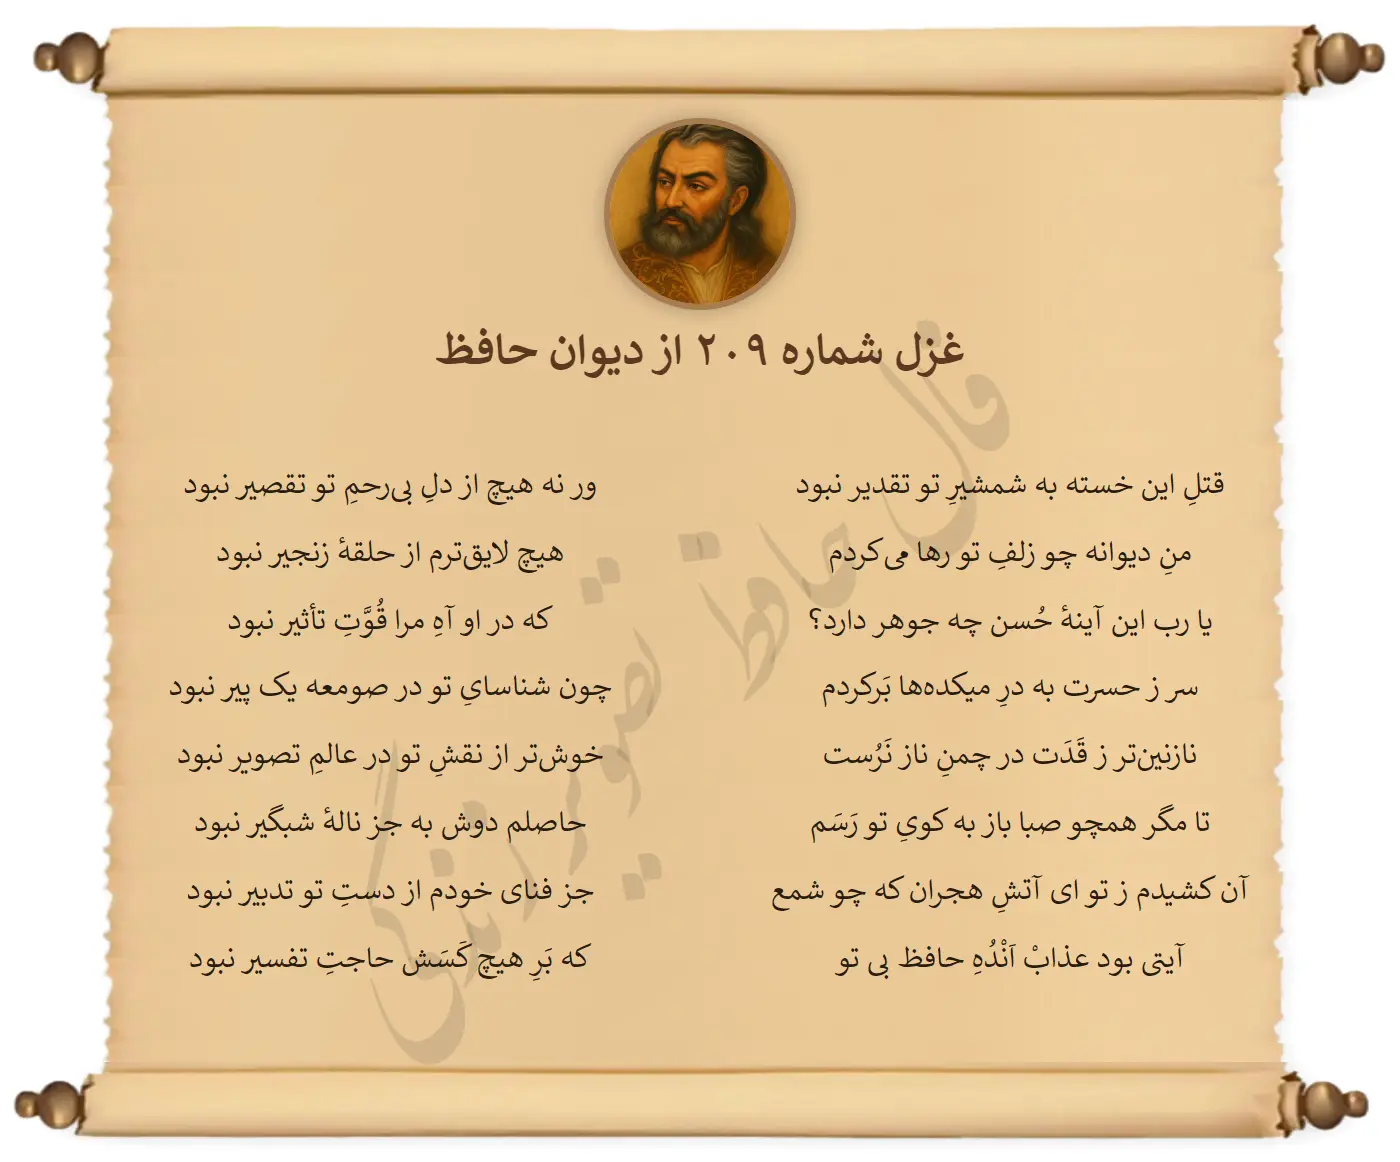 غزل شماره ۲۰۹ از دیوان حافظ
قتلِ این خسته به شمشیرِ تو تقدیر نبود
ور نه هیچ از دلِ بی‌رحمِ تو تقصیر نبود
منِ دیوانه چو زلفِ تو رها می‌کردم
هیچ لایق‌ترم از حلقهٔ زنجیر نبود
یا رب این آینهٔ حُسن چه جوهر دارد؟
که در او آهِ مرا قُوَّتِ تأثیر نبود
سر ز حسرت به درِ میکده‌ها بَرکردم
چون شناسایِ تو در صومعه یک پیر نبود
نازنین‌تر ز قَدَت در چمنِ ناز نَرُست
خوش‌تر از نقشِ تو در عالمِ تصویر نبود
تا مگر همچو صبا باز به کویِ تو رَسَم
حاصلم دوش به جز نالهٔ شبگیر نبود
آن کشیدم ز تو ای آتشِ هجران که چو شمع
جز فنای خودم از دستِ تو تدبیر نبود
آیتی بود عذابْ اَنْدُهِ حافظ بی تو
که بَرِ هیچ کَسَش حاجتِ تفسیر نبود
فال حافظ تصویر زندگی